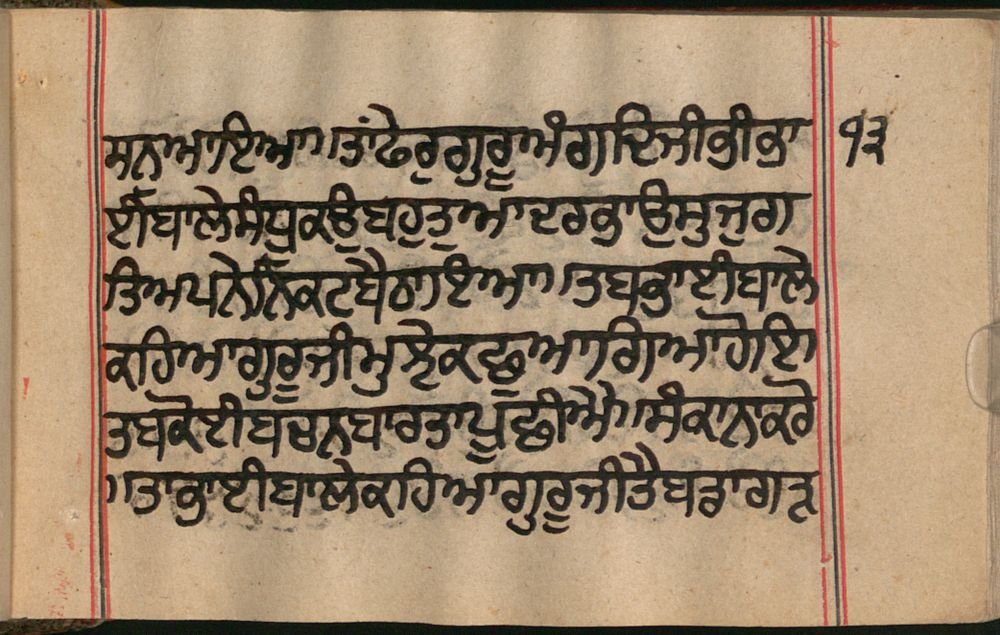 ਸਨਾਆਇਆ॥ਤਾਂਫੇਰੁਗੁਰੂਅੰਗਦਿਜੀਭੀਭਾ
ਈਬਾਲੇਸੰਯੁਕਉਬਹੁਤੁਆਦਰਭਾਉਸੁਜੁਗ
ਤਿਅਪਨੇਨਿਕਟਬੈਠਾਇਆ॥ਤਬਭਾਈਬਾਲੇ
ਕਹਿਆਗੁਰੂਜੀਮੁਲੇਕਛੁਆਗਿਆਹੋਇ
ਤਬਕੋਈਬਚਨਬਾਰਤਾਪੂਛੀਐ॥ਸੰਕਾਨਕਰੋ
॥ਤਾਭਾਈਬਾਲੇਕਹਿਆਗੁਰੂਜੀਤੈਬਡਾਗੜ
੧੩